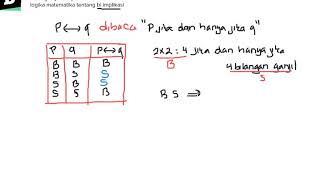 logika matematika tentang bi implikasi
P ↔ q dibaca "P jika dan hanya jika q"
P q P↔q
B B B
B S S
S B S
S S B
2x2 : 4 jika dan hanya jika
B
4 bilangan ganjil
S
B S ⇒